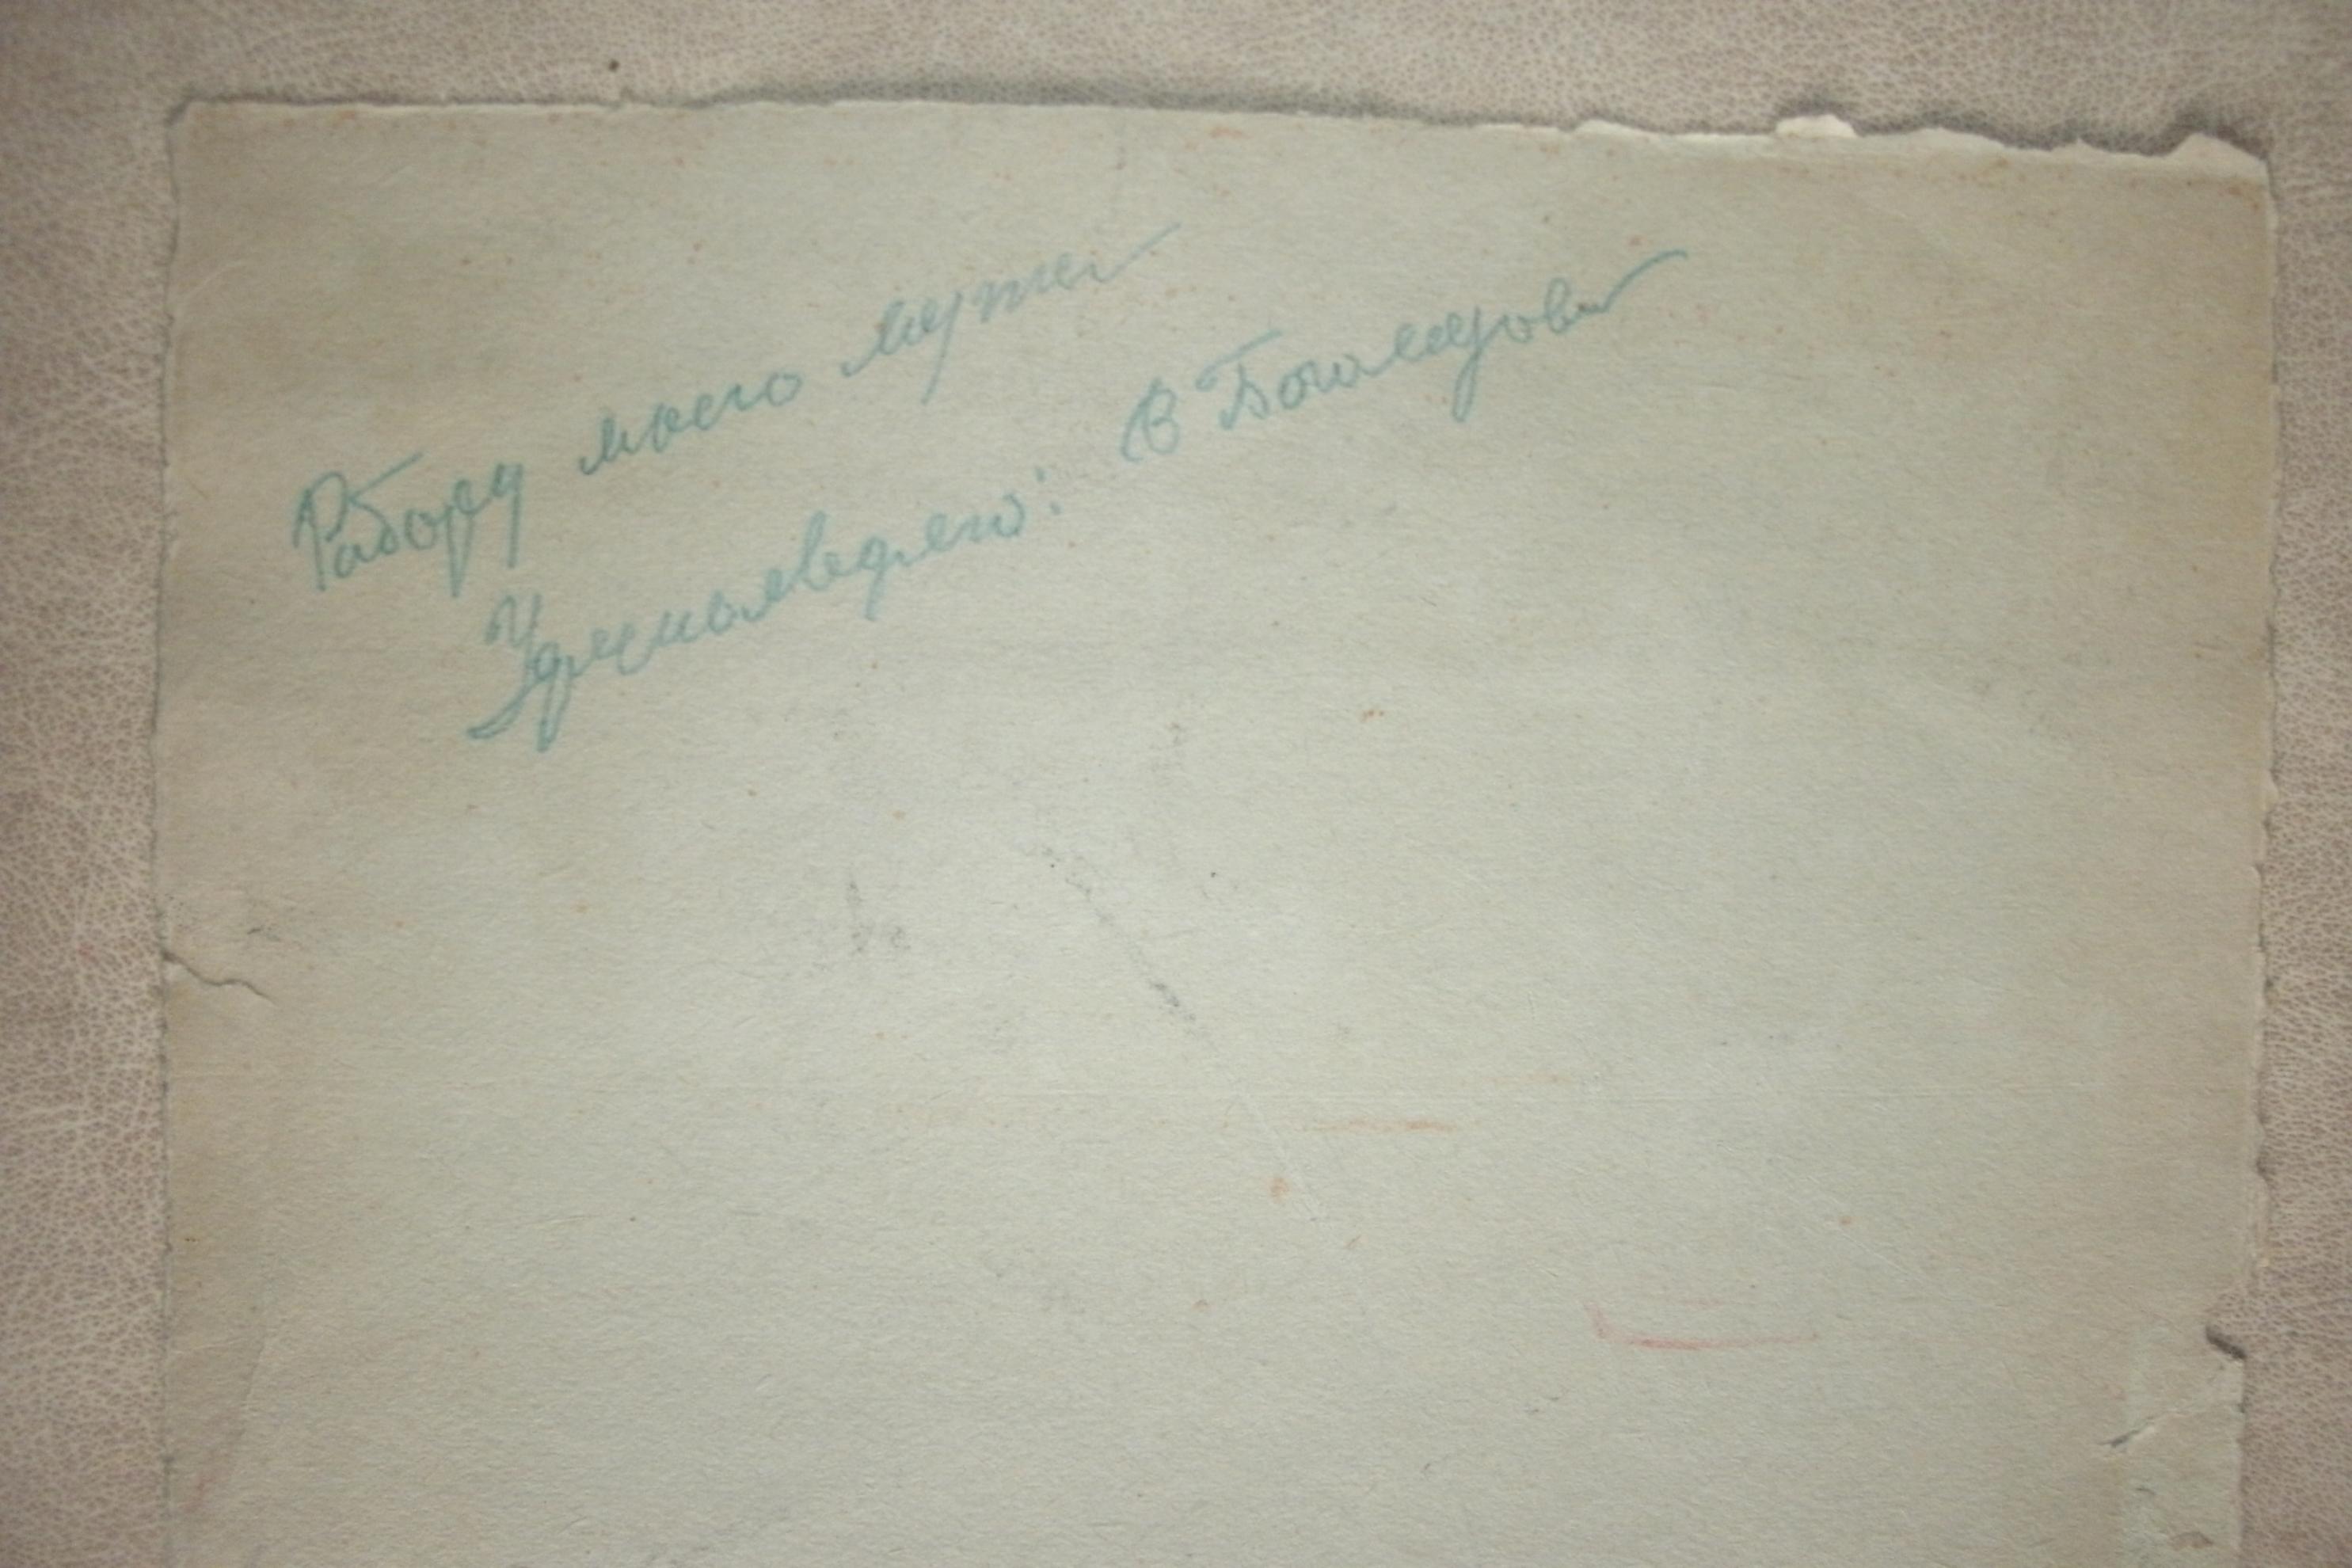 Работу моего мужа
Удостоверяю: В Богомазова